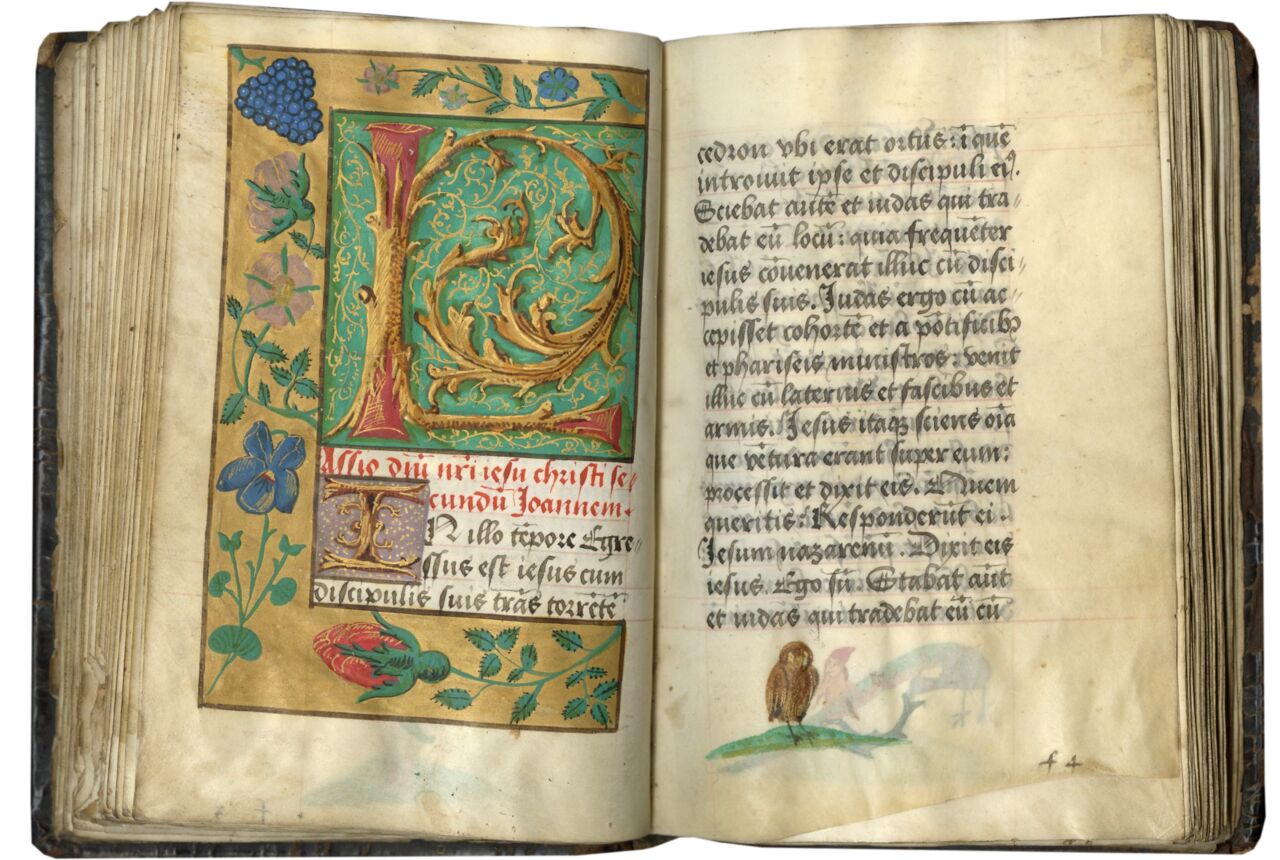 P
Assio dn̄i nr̄i iesu christi se⸗
cundū Joannem.
IN illo tēpore Egre⸗
ssus est iesus cum
discipulis suis trās torrētē
cedron vbi erat ortus: ī quē
introiuit ipse et discipuli eiꝰ.
Sciebat autē et iudas qui tra⸗
debat eū locū: quia frequēter
iesus cōuenerat illuc cū disci⸗
pulis suis. Judas ergo cū ac⸗
cepisset cohortē et a pōtificibꝰ
et phariseis ministros: venit
illuc cū laternis et fascibus et
armis. Jesus itaqꝫ sciens oīa
que vētura erant super eum:
processit et dixit eis. Quem
queritis: Responderūt ei.
Jesum nazarenū. Dixit eis
iesus. Ego sū. Stabat aūt
et iudas qui tradebat eū cū
f 4